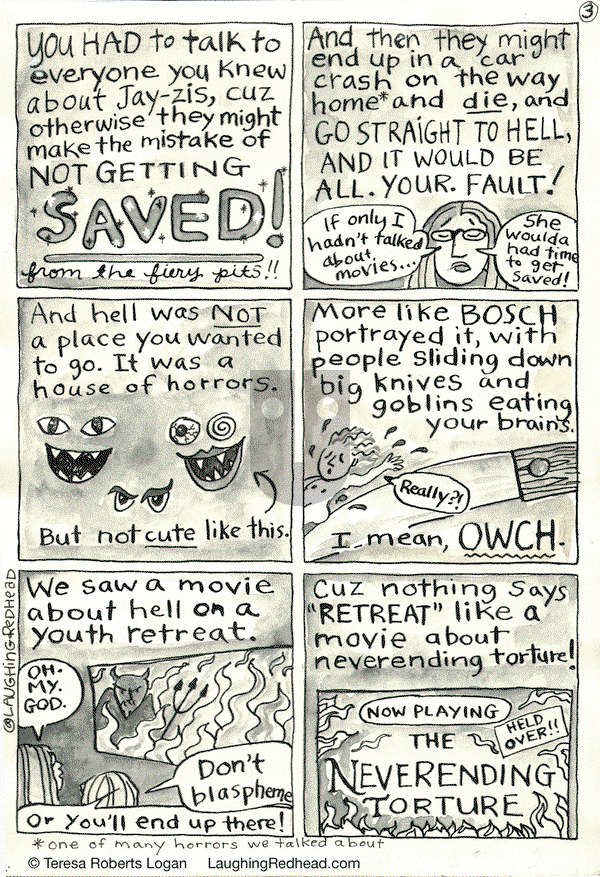 3
YOU HAD to talk to
everyone you knew
about Jay-zis, cuz
otherwise they might
make the mistake of
NOT GETTING
SAVED!
from the fiery pits!!
And then they might
end up in a car
crash on the way
home* and die, and
GO STRAIGHT TO HELL,
AND IT WOULD BE
ALL. YOUR. FAULT!
If only I
hadn't talked
about
movies...
She
woulda
had time
to get
saved!
And hell was NOT
a place you wanted
to go. It was a
house of horrors.
But not cute like this.
More like BOSCH
portrayed it, with
people sliding down
big knives and
goblins eating
your brains.
Really?!
I mean, OWCH.
We saw a movie
about hell on a
youth retreat.
OH.
MY.
GOD.
Don't
blaspheme
Or you'll end up there!
Cuz nothing says
"RETREAT" like a
movie about
neverending torture!
NOW PLAYING
HELD
OVER!!
THE
NEVERENDING
TORTURE
@LAUGHINGREDHEAD
*one of many horrors we talked about
© Teresa Roberts Logan LaughingRedhead.com